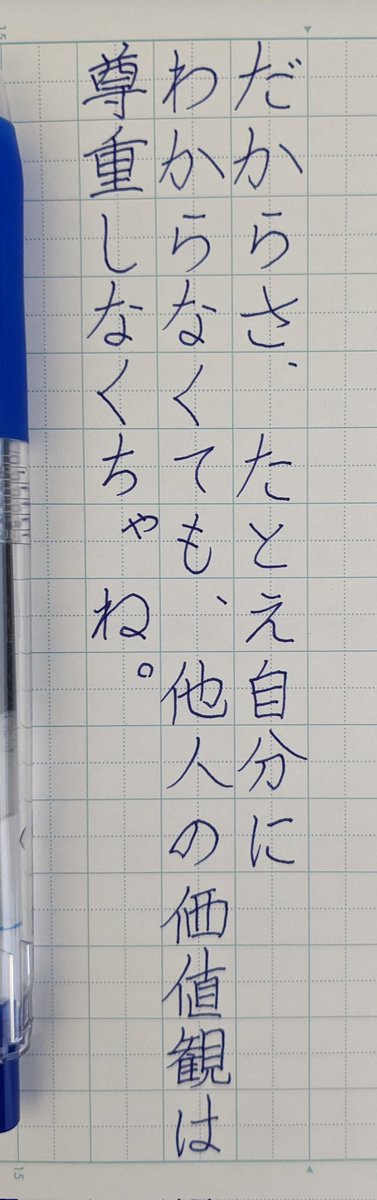 だからさ、たとえ自分に
わからなくても、他人の価値観は
尊重しなくちゃね。
15